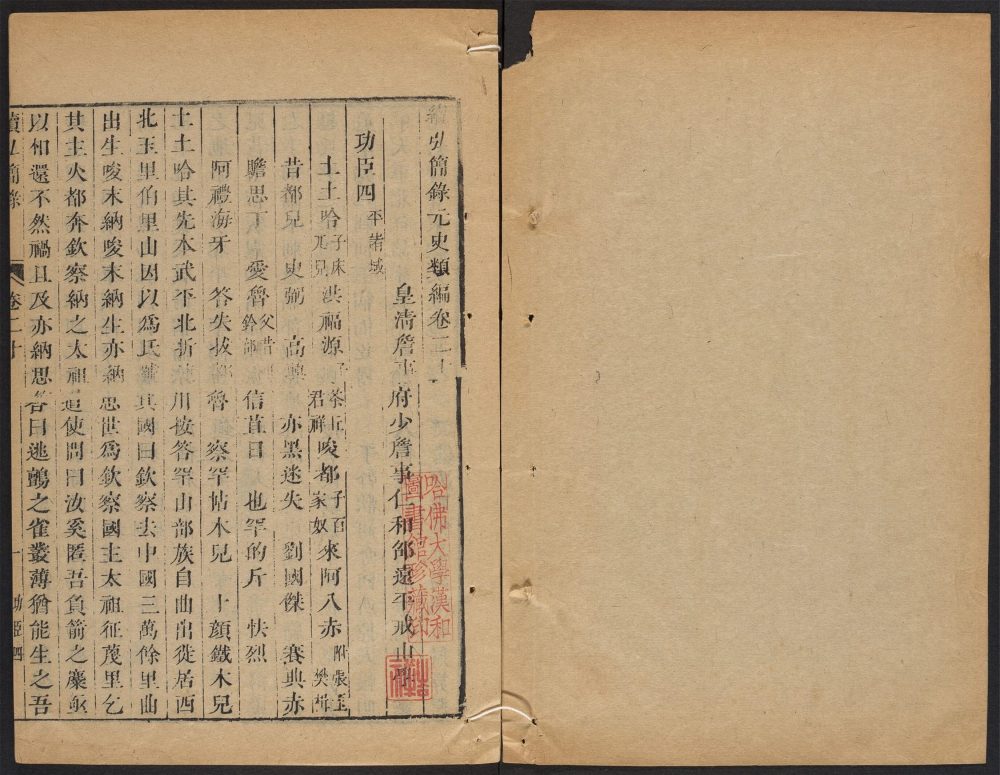 續弘簡錄元史類編卷二十
皇清詹事府少詹事仁和邵遠平戒山
功臣四 平諸域
土土哈 子床兀兒 洪福源 子茶丘 君祥 唆都 子百家奴 來阿八赤 附張玉 樊楫
昔都兒 史弼 高興 亦黑迷失 劉國傑 賽典赤
贍思丁 愛魯 父昔里鈐部 信苴日 也罕的斤 快烈
阿禮海牙 答失拔都魯 察罕帖木兒 卜顏鐵木兒
土土哈其先本武平北折連川按答罕山部族自曲出徙居西
北玉里伯里山因以爲氏號其國曰欽察去中國三萬餘里曲
出生唆末納唆末納生亦納思世爲欽察國主太祖征蔑里乞
其主火都奔欽察納之太祖遣使問曰汝奚匿吾負箭之麋亟
以相還不然禍且及亦納思答曰逃鸇之雀叢薄猶能生之吾
續弘簡錄 卷二十 一 功臣四
哈佛大學漢和
圖書館珍藏印